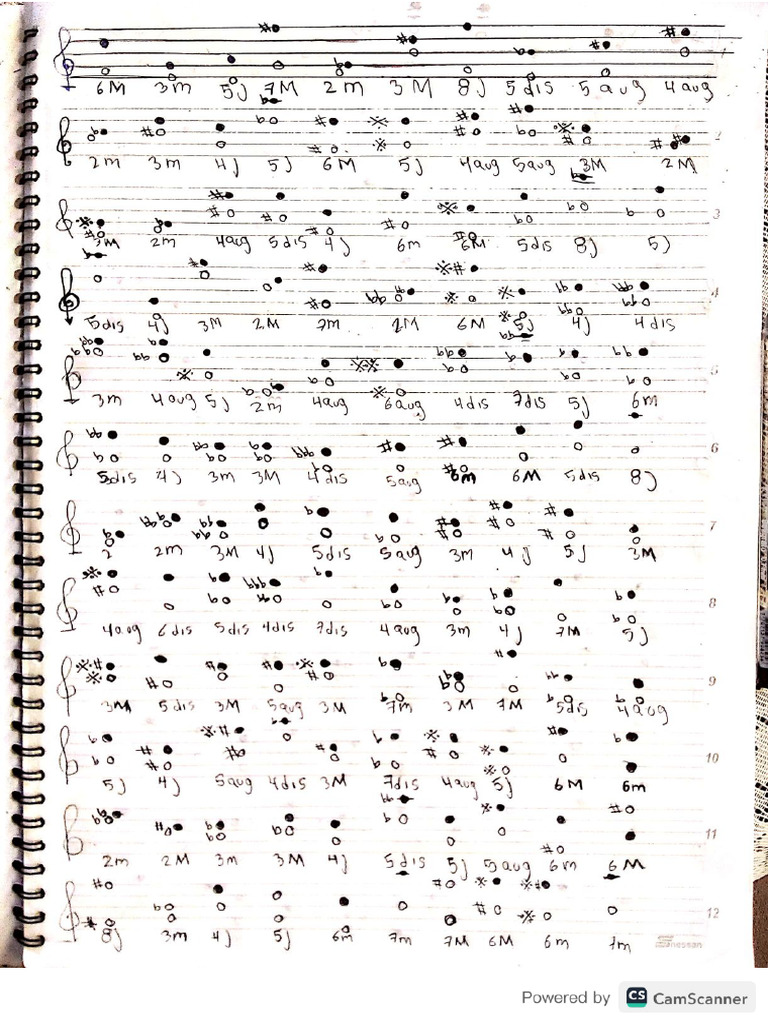 6M 3m 5J 7M 2m 3M 8J 5dis 5aug 4aug
2
2m 3m 4J 5J 6M 5J 4aug 5aug 3M 2M
3
2m 4aug 5dis 4J 6m 6M 5dis 8J 5J
4
5dis 4J 3M 2M 7m 2M 6M 5J 4J 4dis
5
3m 4aug 5J 2m 4aug 6aug 4dis 7dis 5J 6m
6
5dis 4J 3m 3M 4dis 5aug 6m 6M 5dis 8J
7
2 2m 3M 4J 5dis 5aug 3m 4J 5J 3M
8
4aug 6dis 5dis 4dis 7dis 4aug 3m 4J 7M 5J
9
3M 5dis 3M 5aug 3M 7m 3M 7M 5dis 4aug
10
5J 4J 5aug 4dis 3M 7dis 4aug 5J 6M 6m
11
2m 2M 3m 3M 4J 5dis 5J 5aug 6m 6M
12
8J 3m 4J 5J 6m 7m 7M 6M 6m 7m
Sanessan
Powered by CS CamScanner